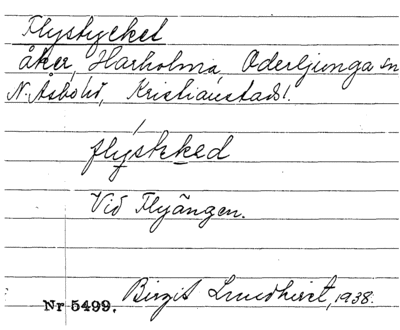 Flystycket
åker, Harholma, Oderljunga sn
N. Åsbo hd, Kristianstads l.
flýstkked
Vid Flyängen.
Nr 5499. Birgit Lundkvist, 1938.